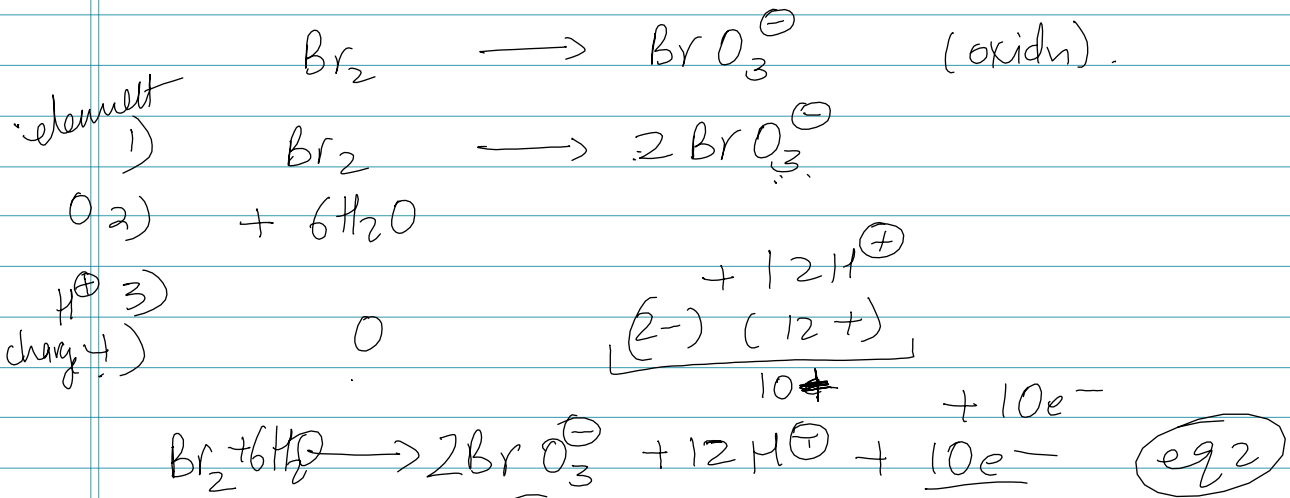 Br₂ ⟶ BrO₃⊖ (oxidn).
element
1) Br₂ ⟶ 2BrO₃⊖
O 2) + 6H₂O
+ 12H⊕
H⊕ 3)
charg 4) 0 (2-) (12+)
10+
+ 10e⁻
Br₂+6H₂O ⟶ 2BrO₃⊖ + 12H⊕ + 10e⁻ eq2